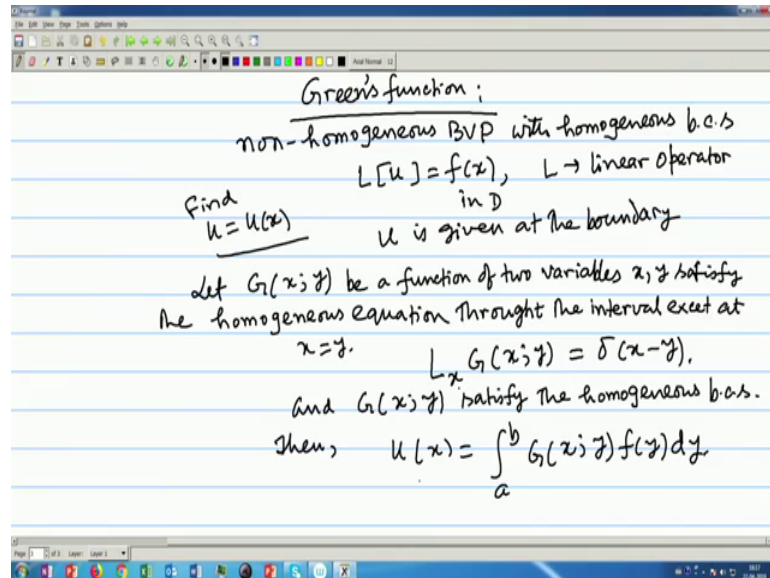 File Edit View Page Tools Options Help
Arial Normal 12
Green's function;
non-homogeneous BVP with homogeneous b.c.s
L[u] = f(x), L → linear operator
in D
Find
u = u(x)
u is given at the boundary
Let G(x;y) be a function of two variables x, y satisfy
the homogeneous equation throught the interval excet at
x = y. L_x G(x;y) = δ(x-y).
and G(x;y) satisfy the homogeneous b.c.s.
Then, u(x) = ∫_a^b G(x;y) f(y) dy.
Page 3 of 3 Layer: Layer 1